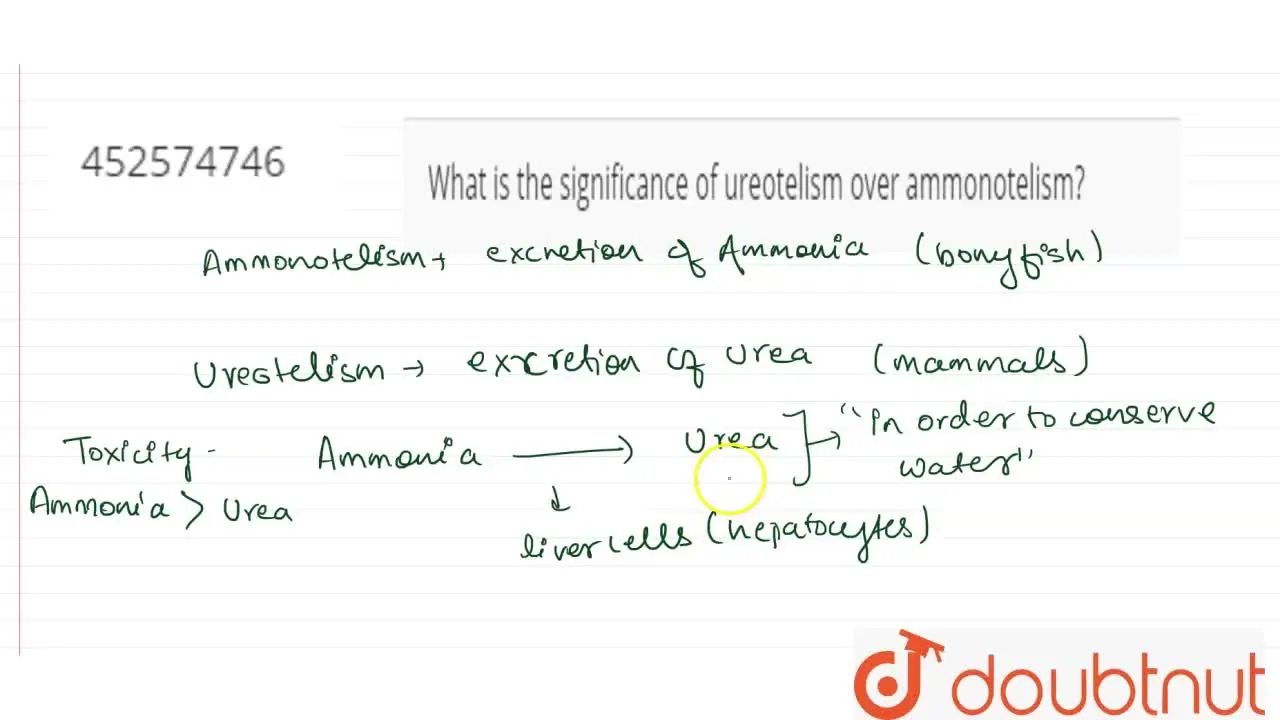 452574746
What is the significance of ureotelism over ammonotelism?
Ammonotelism → excretion of Ammonia (bonyfish)
Ureotelism → excretion of Urea (mammals)
Toxicity - Ammonia → Urea ] → "In order to conserve water"
Ammonia > Urea
↓
liver cells (hepatocytes)
doubtnut